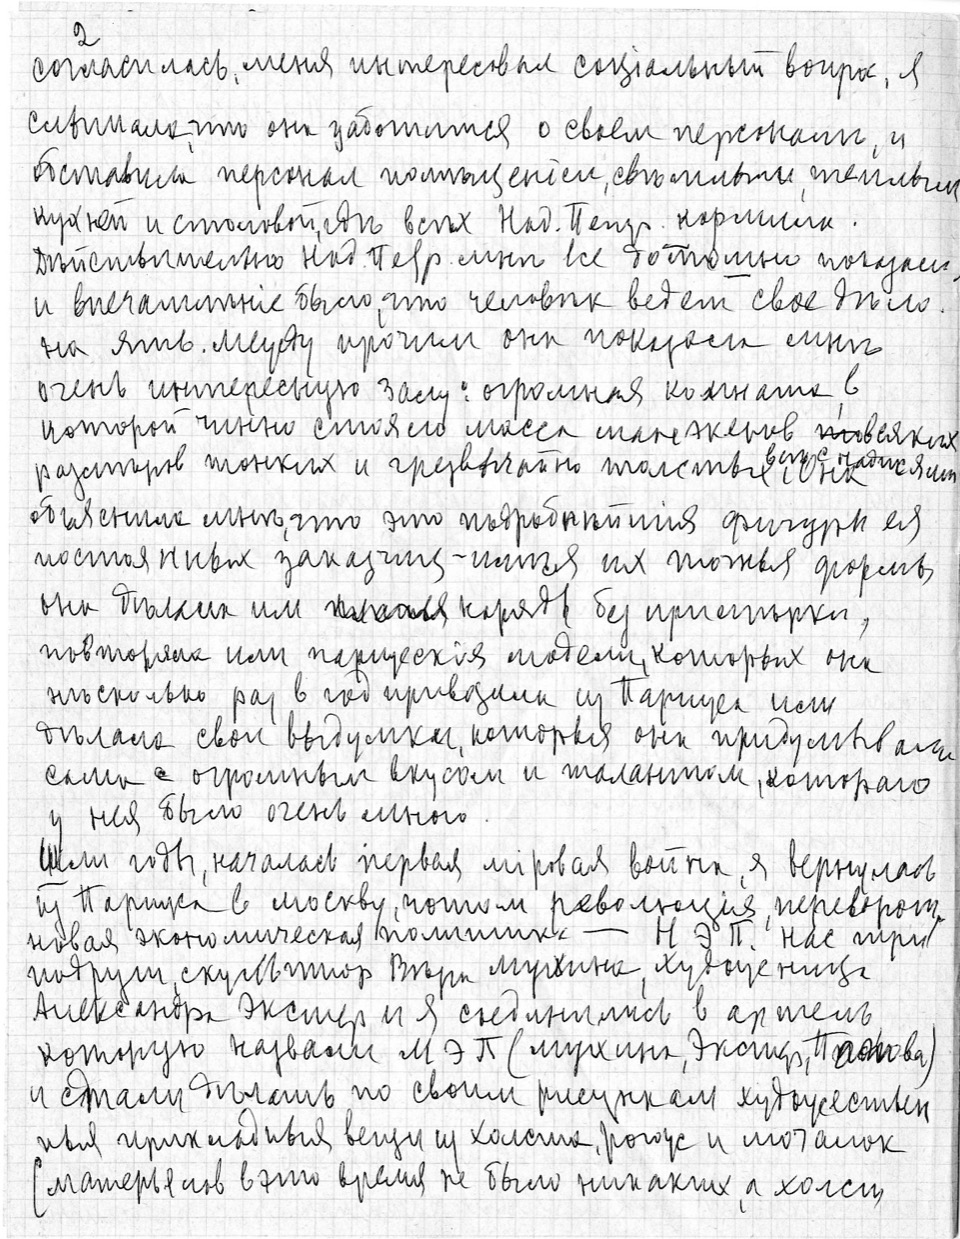 2
согласилась, меня интересовал соцiальный вопрос, я
слышала, что она заботится о своем персонале, и
обставила персонал помѣщенiем, свѣтлым, теплым
кухней и столовой, гдѣ всѣх Над. Петр. кормила.
Дѣйствительно Над. Петр. мнѣ все дотошно показала,
и впечатлѣнiе было, что человѣк ведет свое дѣло
на ять. Между прочим она показала мнѣ
очень интересную залу: огромная комната, в
которой чинно стояла масса манекенов всяких
размѣров тонких и чрезвычайно толстых всѣ с надписями. Она
объяснила мнѣ, что это подробнѣйшiя фигуры ея
постоянных заказчиц - имѣя их точныя формы,
она дѣлала им наряды без примѣрки,
повторяла или парижскiя модели, которых она
нѣсколько раз в год привозила из Парижа или
дѣлала свои выдумки, которыя она придумывала
сама с огромным вкусом и талантом, котораго
у нея было очень много.
Шли годы, началась первая мiровая война, я вернулась
из Парижа в Москву, потом революцiя, переворот,
новая экономическая политика — НЭП. Нас три
подруги, скульптор Вѣра Мухина, художница
Александра Экстер и я соединились в артель
которую назвали МЭП (Мухина, Экстер, Прибыльская)
и стали дѣлать по своим рисункам художествен
ныя прикладныя вещи из холста, рогож и мочалок
(матерьялов в это время не было никаких, а холст,